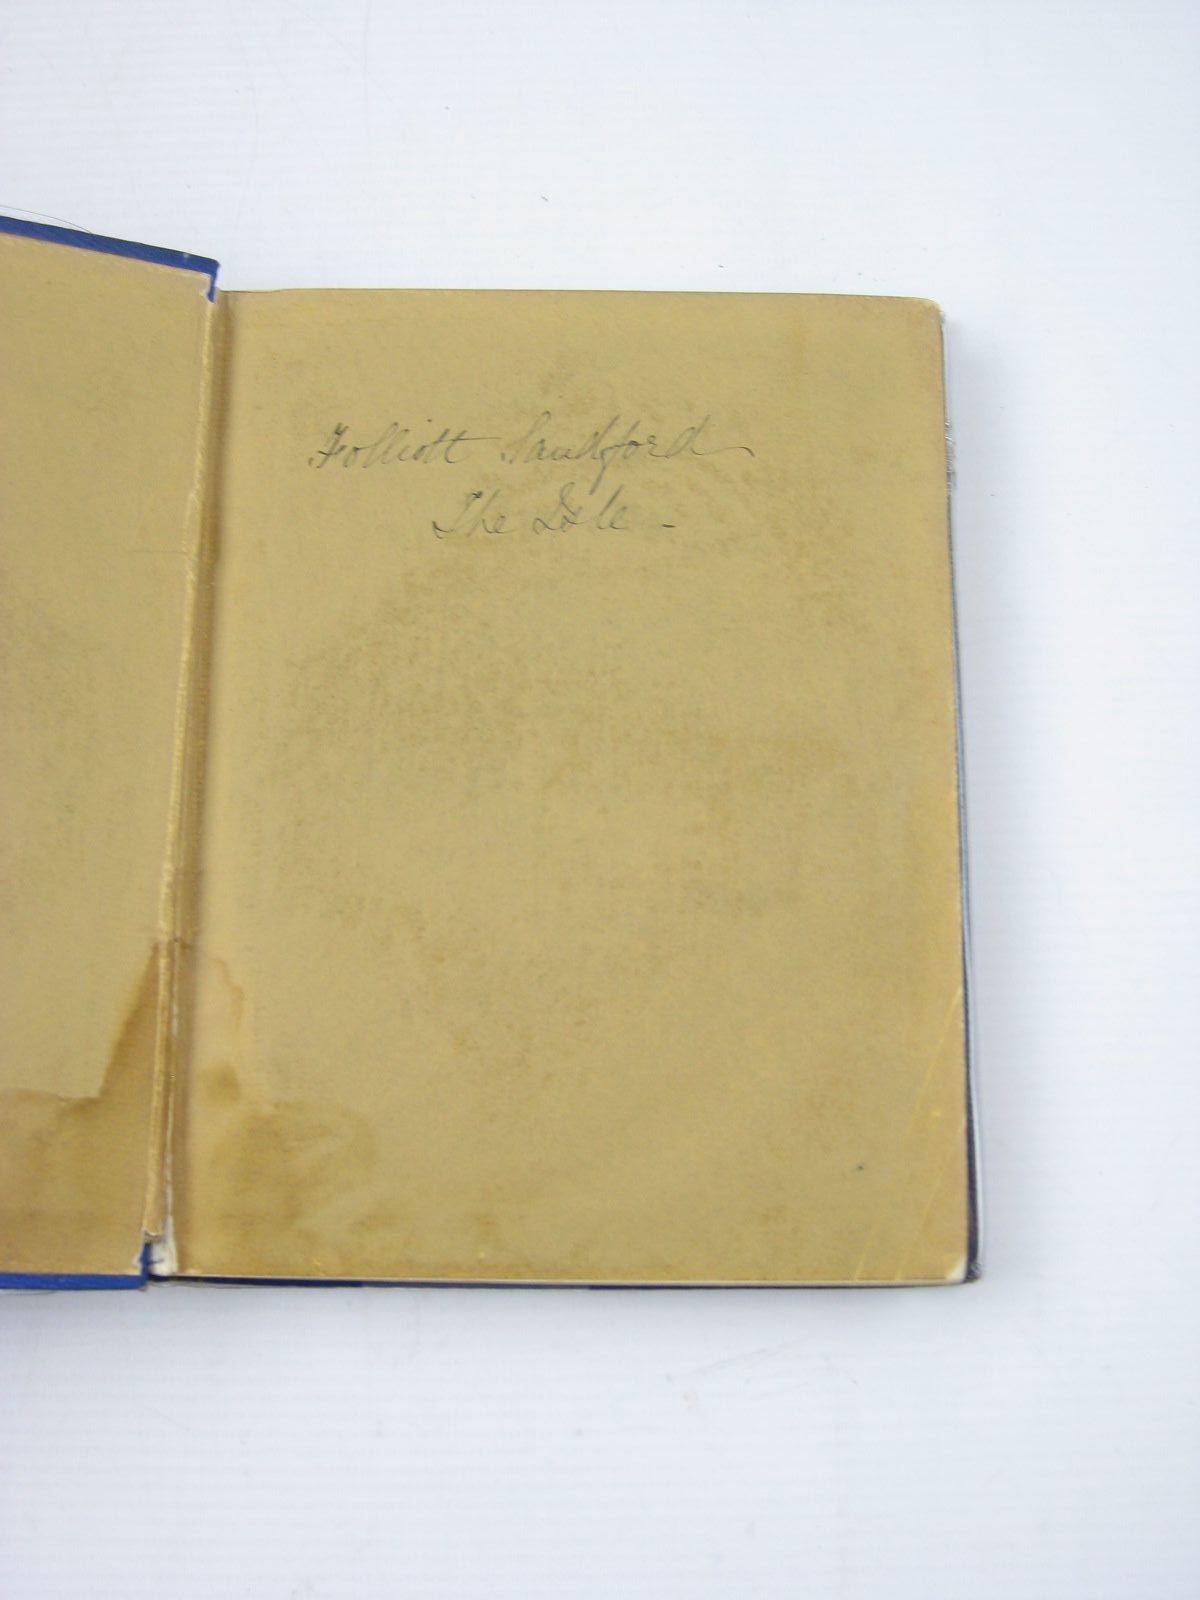 Folliott Sandford
The Isle -